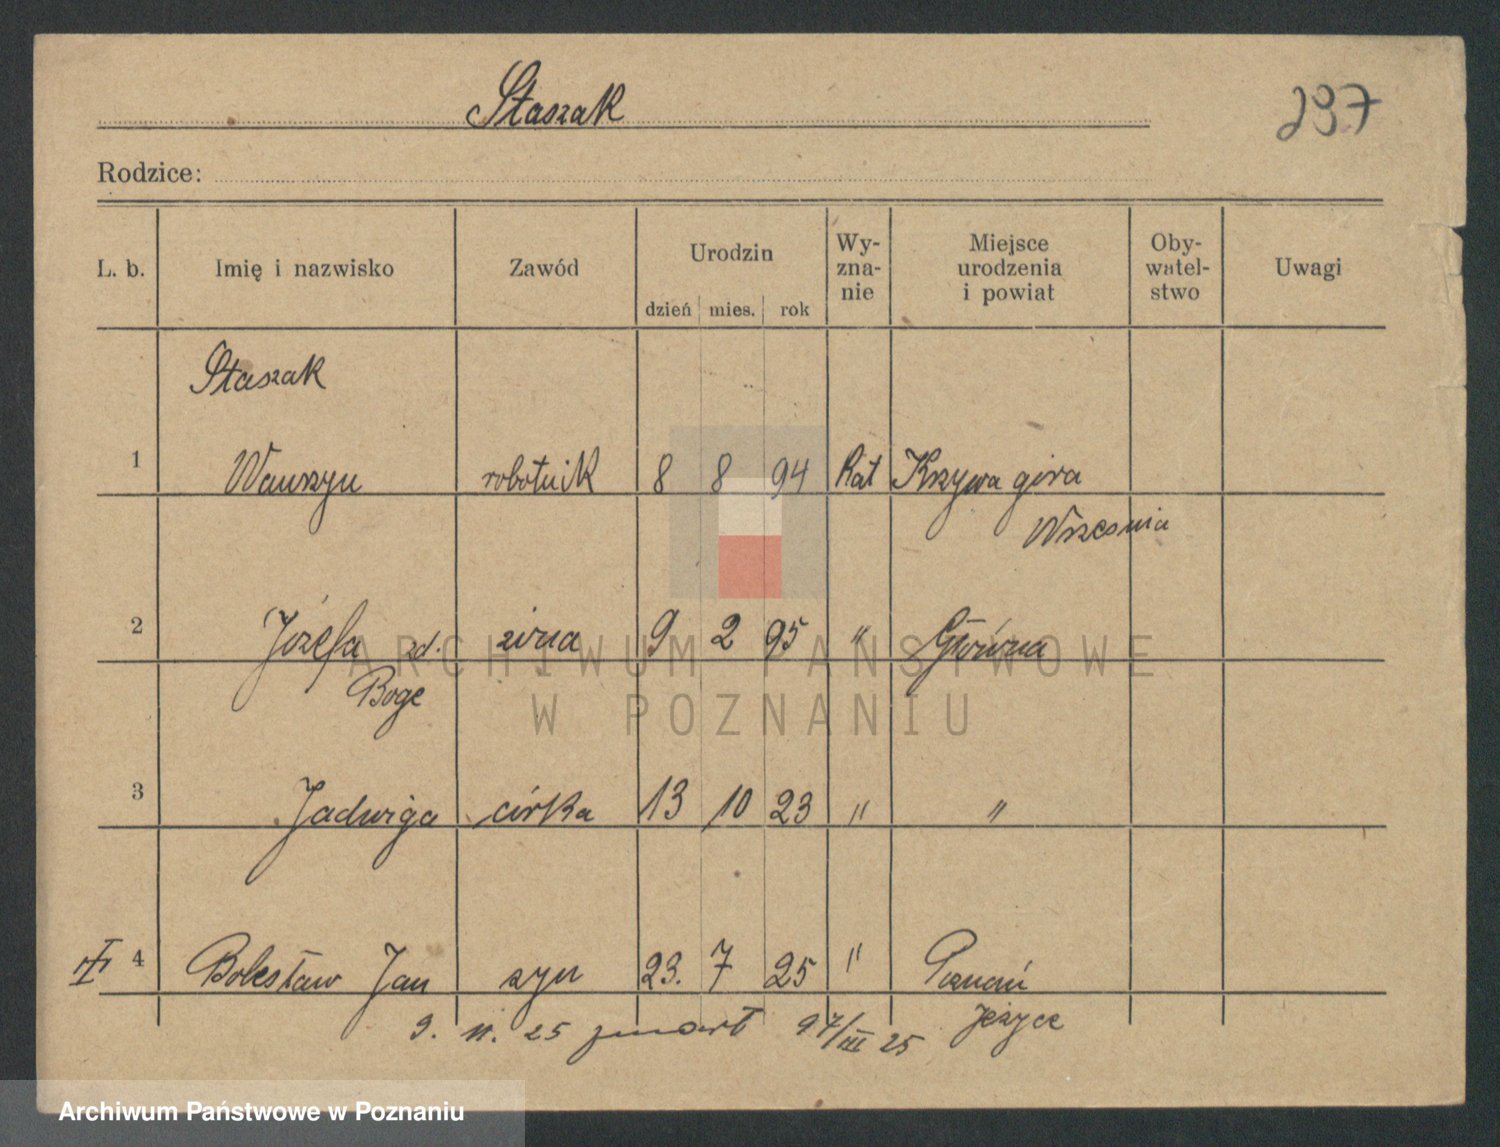 Staszak
297
Rodzice:
L. b. Imię i nazwisko Zawód Urodzin dzień mies. rok Wy-zna-nie Miejsce urodzenia i powiat Oby-watel-stwo Uwagi
Staszak
1 Wawrzyn robotnik 8 8 94 Kat Krzywa góra
Września
2 Józefa zd. żona 9 2 95 " Główna
Boge
3 Jadwiga córka 13 10 23 " "
4 Bolesław Jan syn 23. 7 25 " Poznań
Jeżyce
9. 11. 25 zmarł 97/III 25
ARCHIWUM PAŃSTWOWE
W POZNANIU
Archiwum Państwowe w Poznaniu